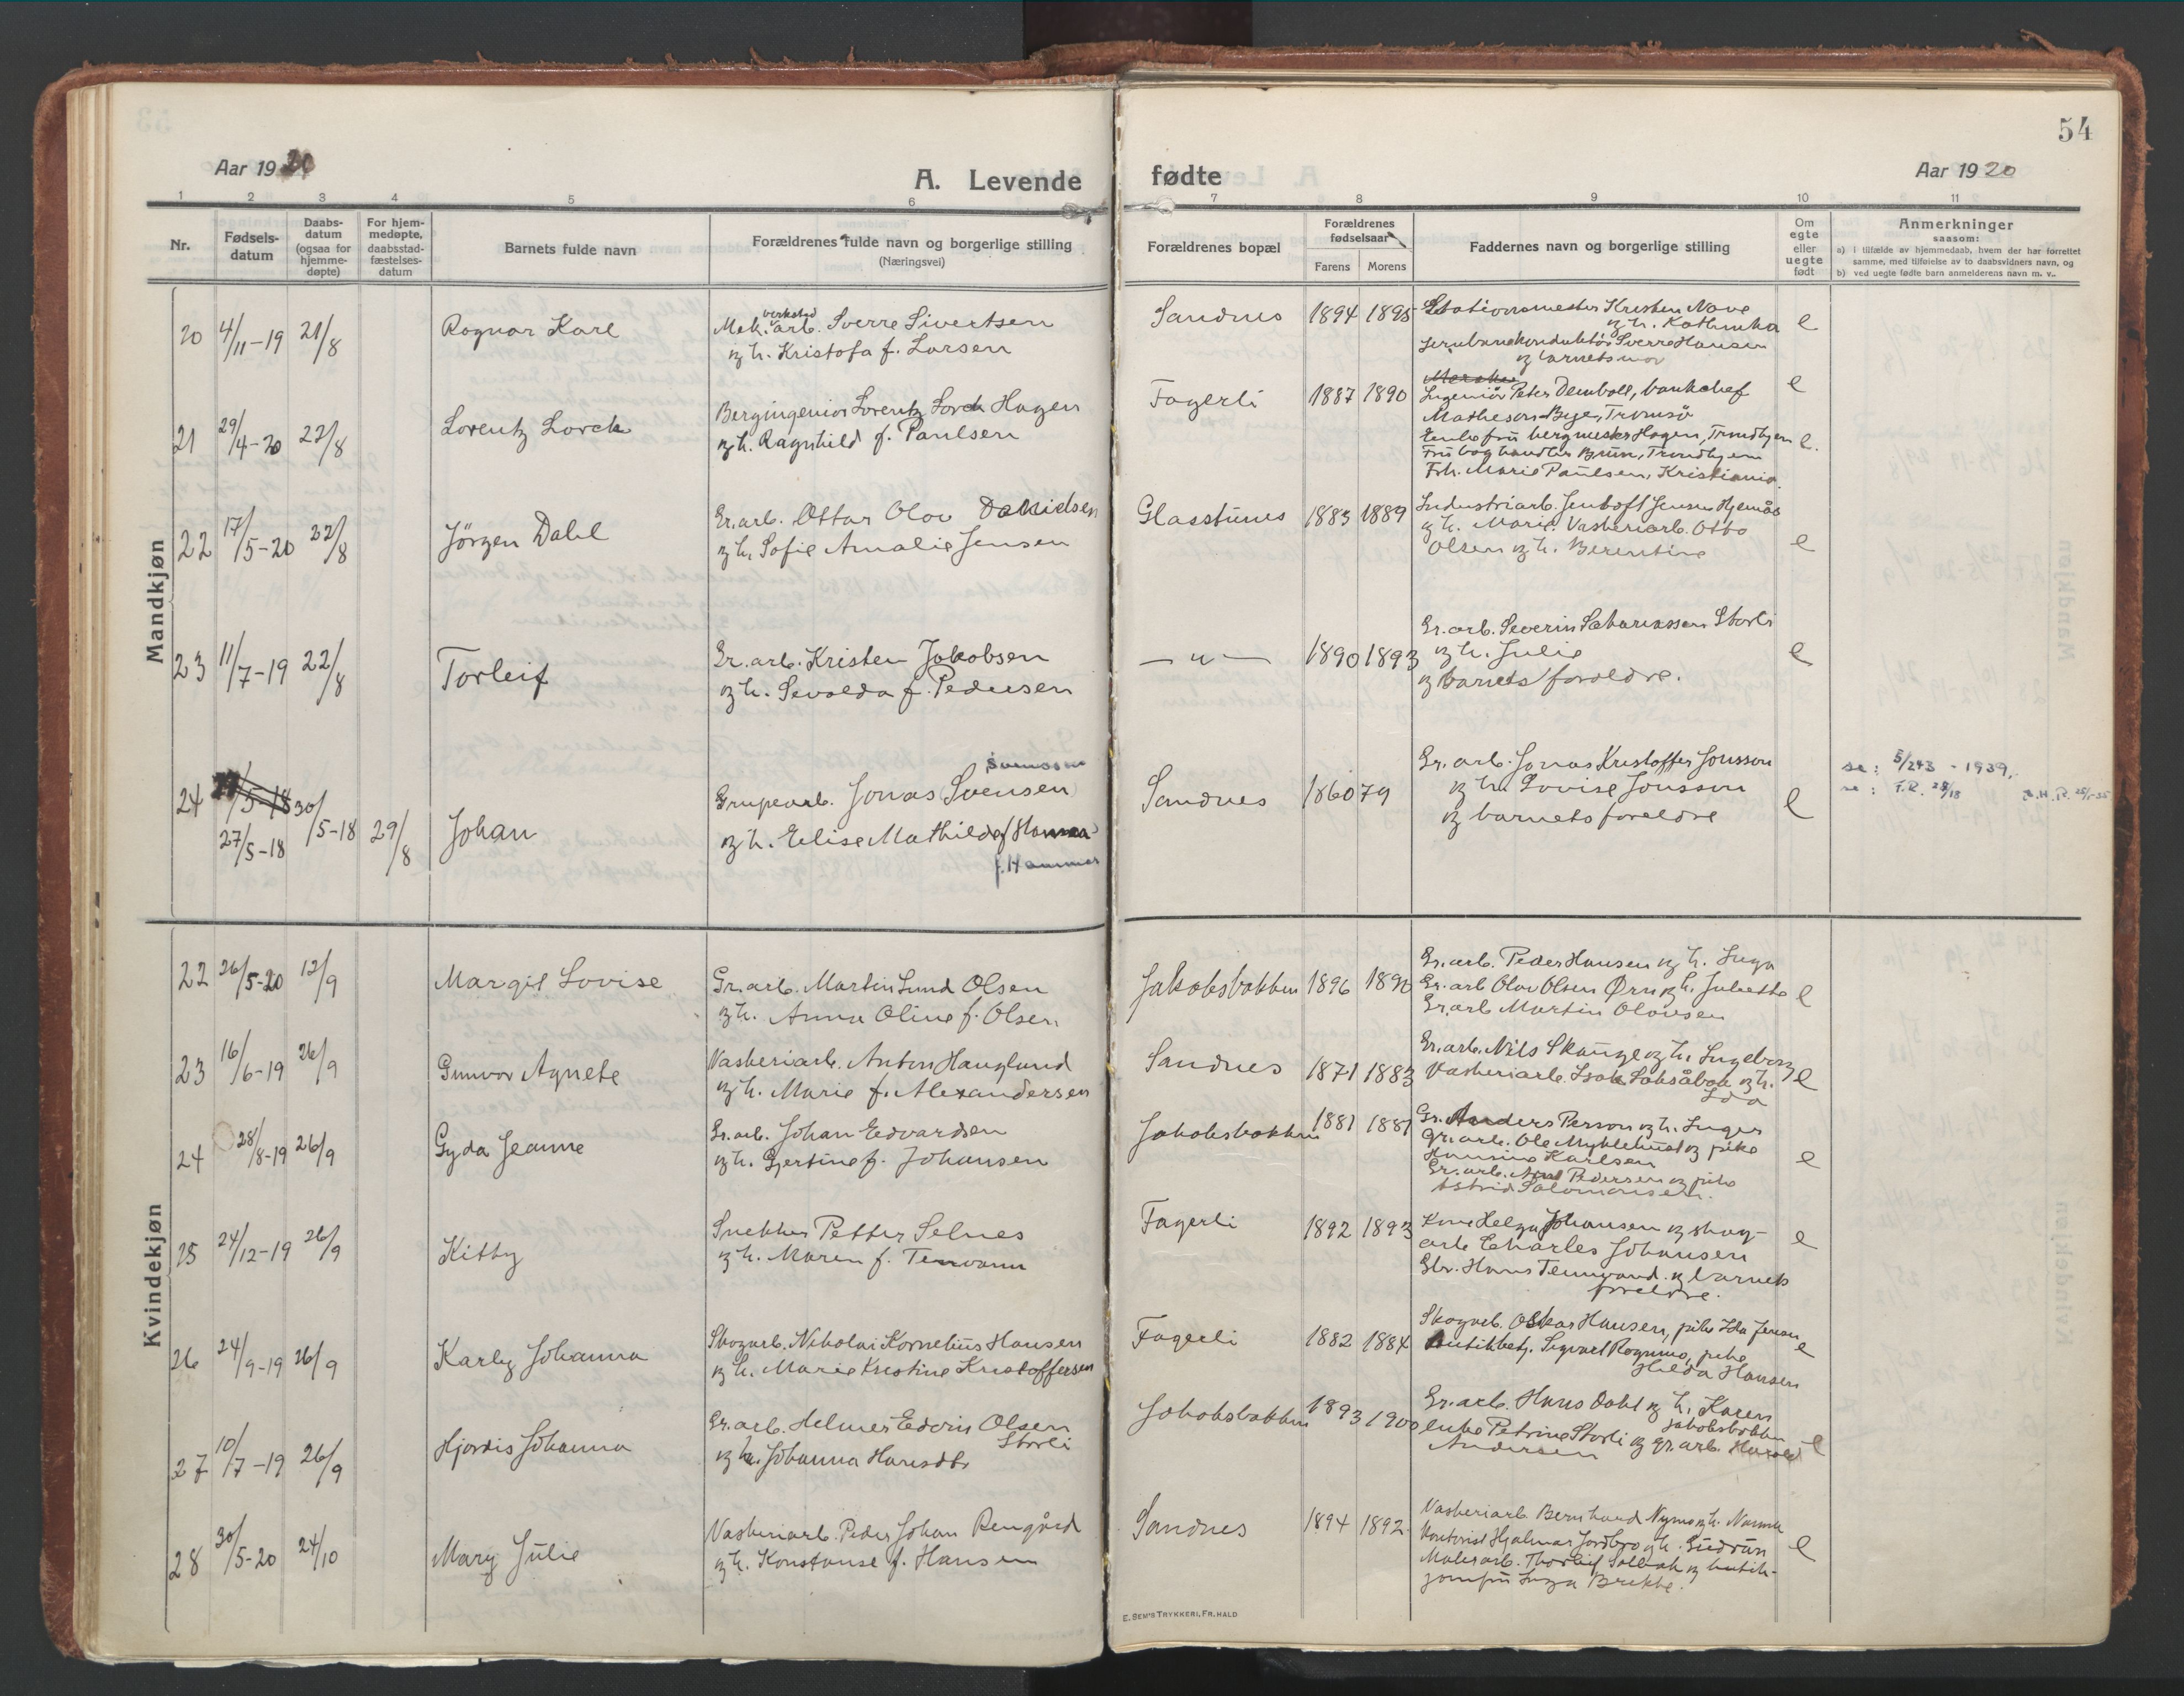 54
Aar 1920
A. Levende
fødte
Aar 1920
1 2 3 4 5 6 7 8 9 10 11
Nr.
Fødsels-
datum
Daabs-
datum
(ogsaa for
hjemme-
døpte)
For hjem-
medøpte,
daabsstad-
fæstelses-
datum
Barnets fulde navn
Forældrenes fulde navn og borgerlige stilling
(Næringsvei)
Forældrenes bopæl
Forældrenes
fødselsaar
Farens Morens
Faddernes navn og borgerlige stilling
Om
egte
eller
uegte
født
Anmerkninger
saasom:
a) i tilfælde av hjemmedaab, hvem der har forrettet
samme, med tilføielse av to daabsvidners navn, og
b) ved uegte fødte barn anmelderens navn m. v..
Mandkjøn
20 4/11-19 21/8 Ragnar Karl
Mek. verksted arb. Sverre Sivertsen
og h. Kristofa f. Larsen
Sandnes 1894 1895
Stationsmester Kresten Nove
og h. Kathinka
jernbanekonduktør Sverre Hansen
og barnets mor
e
21 29/4-20 22/8 Lorentz Lorck
Bergingeniør Lorentz Lorck Hagen
og h. Ragnhild f. Paulsen
Fagerli 1887 1890
Ingeniør Peter Demboll, bankchef
Matheson Bye, Tromsø
Enkefru bergmester Hagen, Trondhjem
Fru boghandler Brun, Trondhjem
Frk. Marie Paulsen, Kristiania.
e
e.
22 17/5-20 22/8 Jörgen Dahl
Gr.arb. Ottar Olav Davidsen
og h. Sofie Amalie Jensen
Glastunes 1883 1889
Industriarb. Jentoft Jensen Hjemås
og h. Marie. Vaskeriarb. Otto
Olsen og h. Berentine
e
23 11/7-19 22/8 Torleif
Gr. arb. Kristen Jakobsen
og h. Sevalda f. Pedersen
— " — 1890 1893
Gr. arb. Severin Sakariassen Storli
og h. Julie
og barnets foreldre.
e
24 27/5-18 30/5-18 29/8 Johan
Grupearb. Jonas Svensen
og h. Elise Mathilde f. Hamma
f. Hammer
Sandnes 1860 79
Gr. arb. Jonas Kristoffer Jonsson
og h. Lovise Jonsson
og barnets foreldre
e
se: 5/243 - 1939.
se: F.R. 28/18
Kvindekjøn
22 26/5-20 12/9 Margit Lovise
Gr. arb. Martin Lund Olsen
og h. Anna Oline f. Olsen
Jakobsbakken 1896
Gr. arb. Peder Hansen og h. Inga
Gr. arb Olav Olsen Ørn og h. Juliette
Gr. arb Martin Olausen
e
23 16/6-19 26/9 Gunvor Agnete
Vaskeriarb. Anton Hauglund
og h. Marie f. Alexandersen
Sandnes 1871 1883
Gr. arb. Nils Skauge og h. Ingeborg
Vaskeriarb. Isak Saksåbak og h.
Ida
e
24 28/8-19 26/9 Gyda Jeanne
Gr. arb. Johan Edvardsen
og h. Gjertine f. Johansen
Jakobsbakken 1881 1881
Gr. Anders Person og h. Inger
gr. arb. Ole Myklebust og pike
Hansine Karlsen
Gr. arb. Axel Pedersen og pike
Astrid Salomonsen.
e
25 24/12-19 26/9 Kitty
Snekker Petter Selnes
og h. Maren f. Tennvann
Fagerli 1892 1893
Kone Helga Johansen og skog-
arb. Charles Johansen
Gbr. Hans Tennvand. og barnets
foreldre.
e
26 24/9-19 26/9 Karly Johanna
Skogarb. Nikolai Kornelius Hansen
og h. Marie Kristine Kristoffersen
Fagerli 1882 1884
Skogarb. Oskar Hansen, pike Ida Jensen
Butikbetj. Sigvart Rognmo, pike
Hilda Hansen
e
27 10/7-19 26/9 Hjördis Johanna
Gr. arb. Helmer Edvin Olsen
Storli
og h. Johanna Hansdtr
Jakobsbakken 1893 1900
Gr. arb. Hans Dahl og h. Karen
Jakobsbakken
enke Petrine Storli og gr. arb. Harald
Andersen
e
28 30/5-20 24/10 Mary Julie
Vaskeriarb. Peder Johan Rengård
og h. Konstanse f. Hansen
Sandnes 1894 1892
Vaskeriarb. Bernhard Nymo og h. Namna
Kontorist Hjalmar Jordbro og h. Gudrun
Malerarb. Thorleif Solbak og butik-
jomfru Inga Brekke.
e
E. SEM'S TRYKKERI, FR. HALD